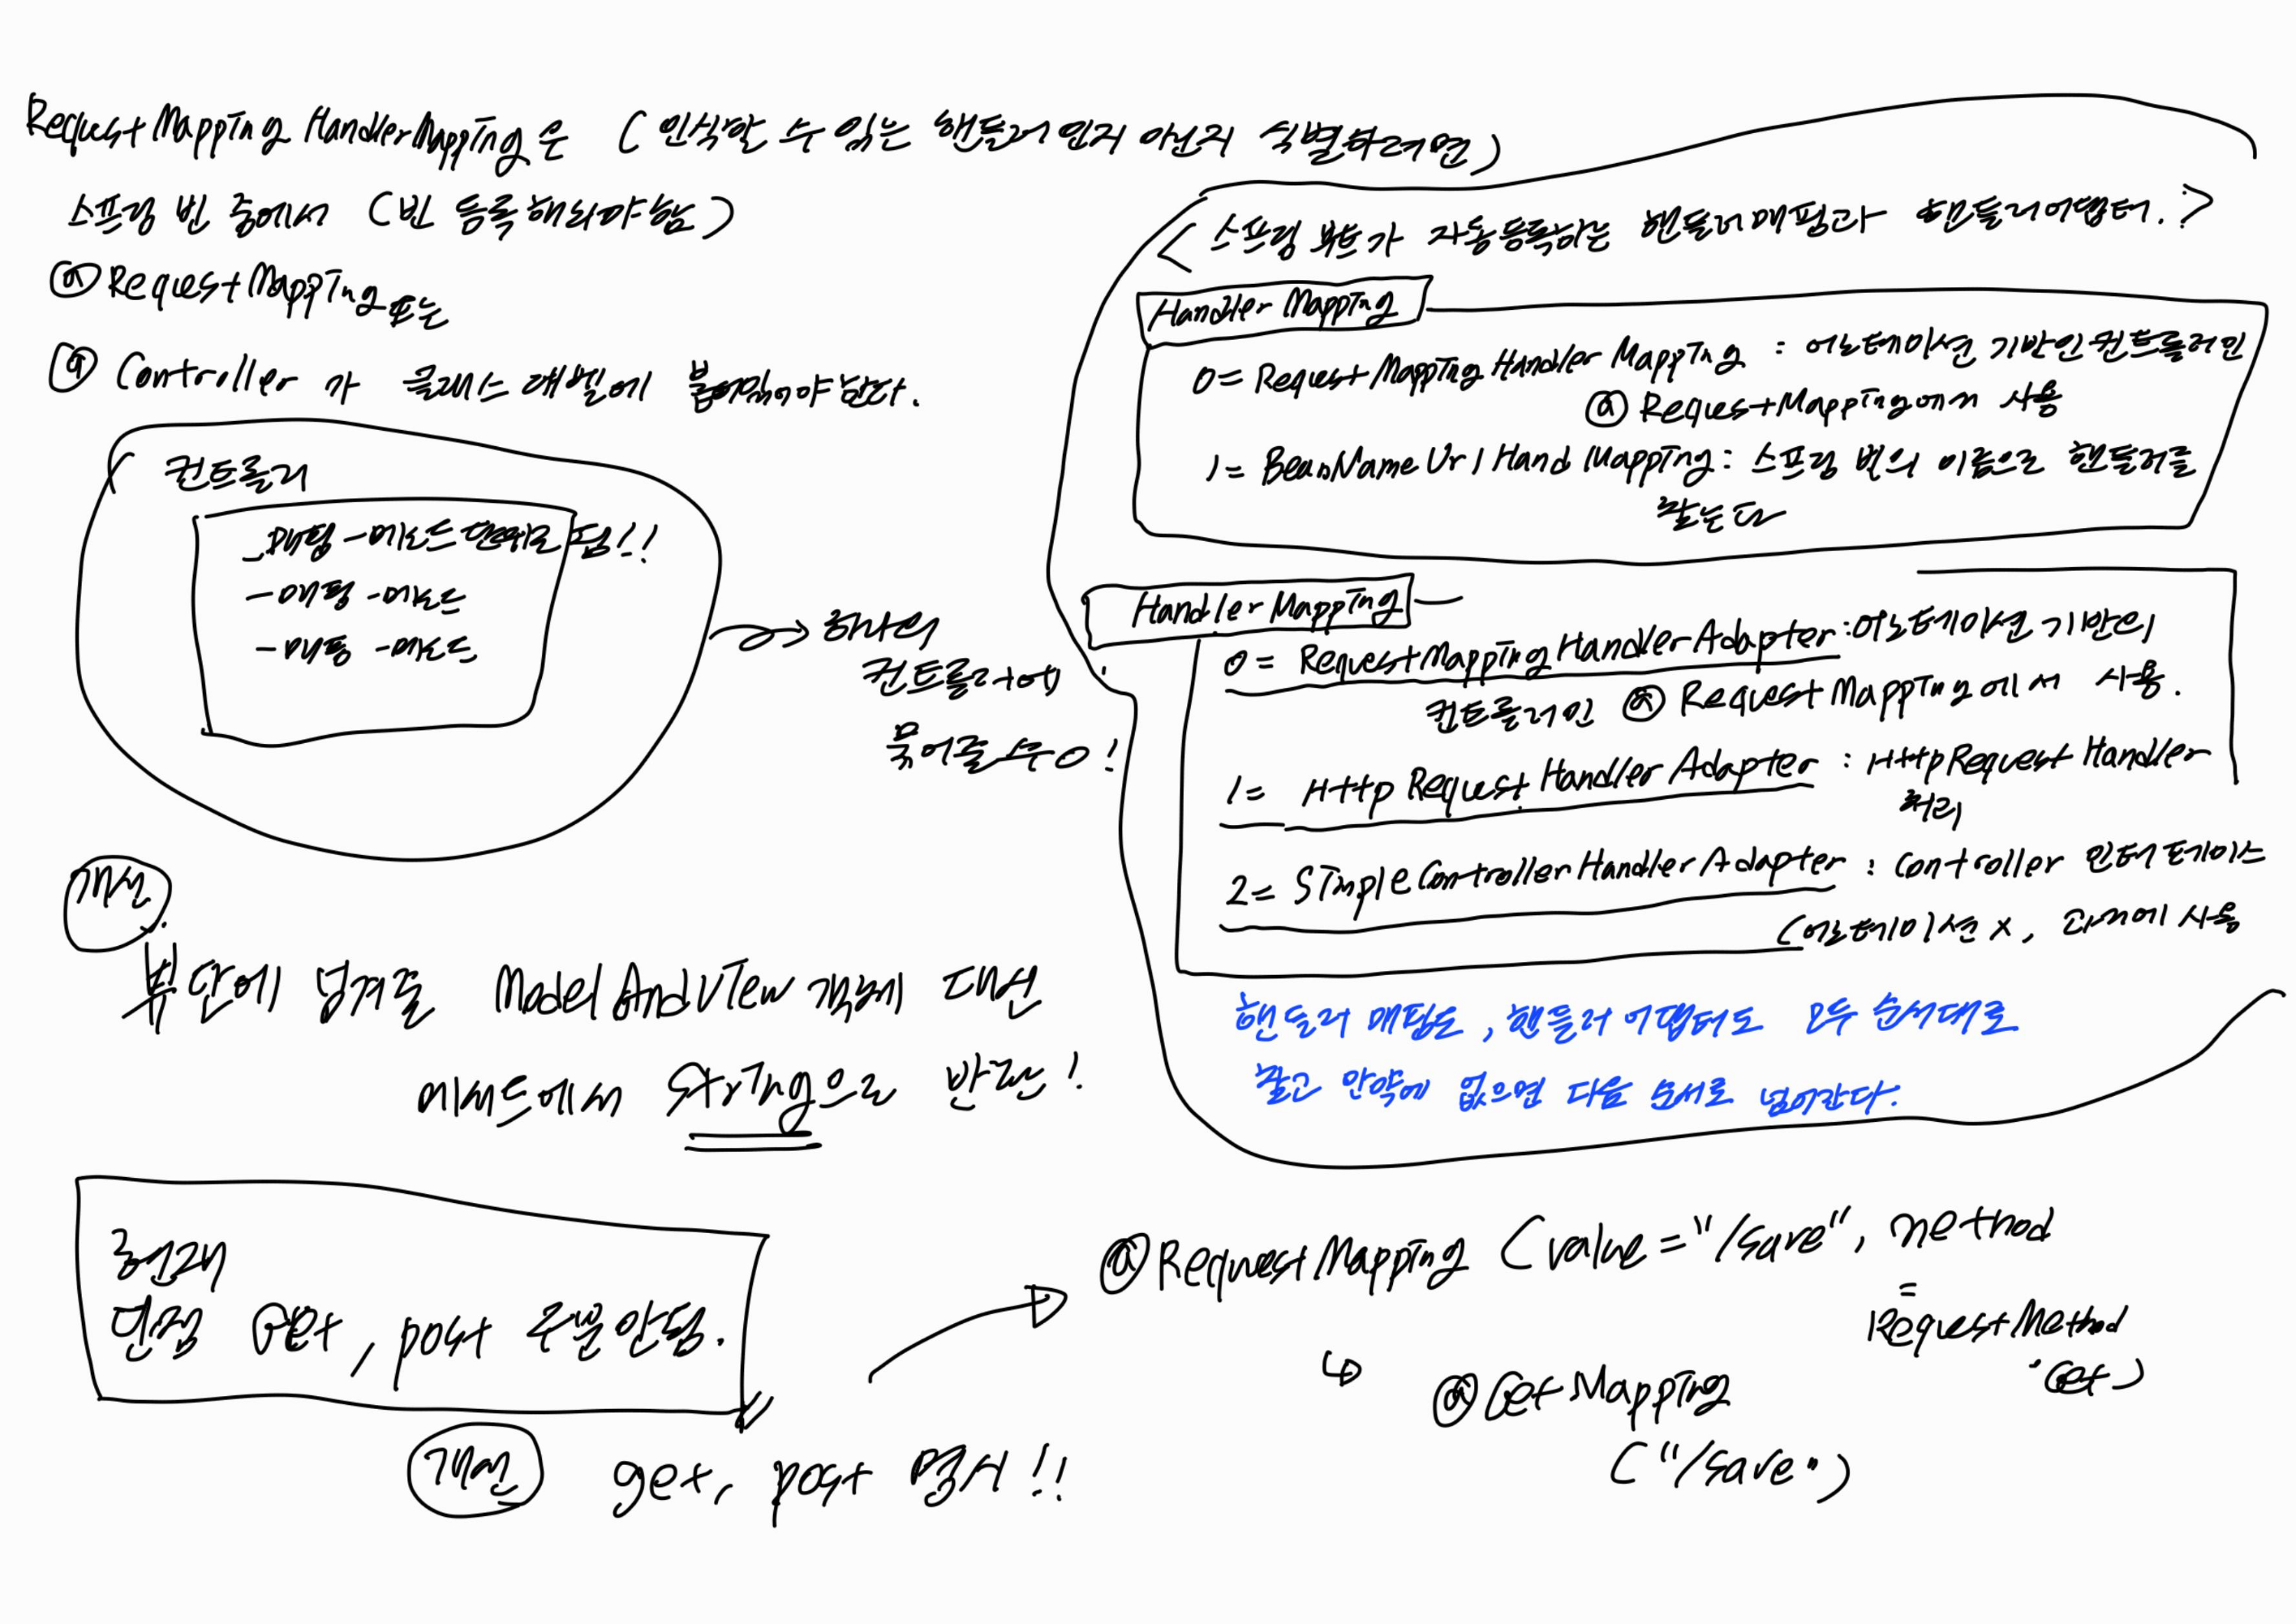 RequestMappingHandlerMapping은 (인식할 수 있는 핸들러인지 아닌지 식별하려면)
스프링 빈 중에서 (빈 등록해놔야함)
@RequestMapping 또는
@Controller가 클래스 레벨에 붙어있어야한다.
컨트롤러
-매핑-메소드 단위로 됨!!
-매핑-메소드
-매핑-메소드
하나의
컨트롤러에
묶어줄 수 O!
개선
뷰 단에 넘겨줄 ModelAndView 객체 대신
메서드에서 String으로 반환!
현재
단점 Get, post 구분안됨.
개선 get, post 명시!!
<스프링 부트가 자동등록하는 핸들러매핑과 핸들러어댑터.>
Handler Mapping
0= RequestMappingHandlerMapping : 어노테이션 기반인 컨트롤러인
@RequestMapping에서 사용
1= BeanNameUrlHandMapping: 스프링 빈의 이름으로 핸들러를
찾는다
Handler Mapping
0= RequestMappingHandlerAdapter:어노테이션 기반의
컨트롤러인 @RequestMapping에서 사용.
1= HttpRequestHandlerAdapter : HttpRequestHandler
처리
2= SimpleControllerHandlerAdapter : Controller 인터페이스
(어노테이션 x, 과거에 사용
핸들러 매핑도, 핸들러 어댑터도 모두 순서대로
찾고 만약에 없으면 다음 순서로 넘어간다.
@RequestMapping (value="/save", method
=
RequestMethod
.Get)
@GetMapping
("/save")